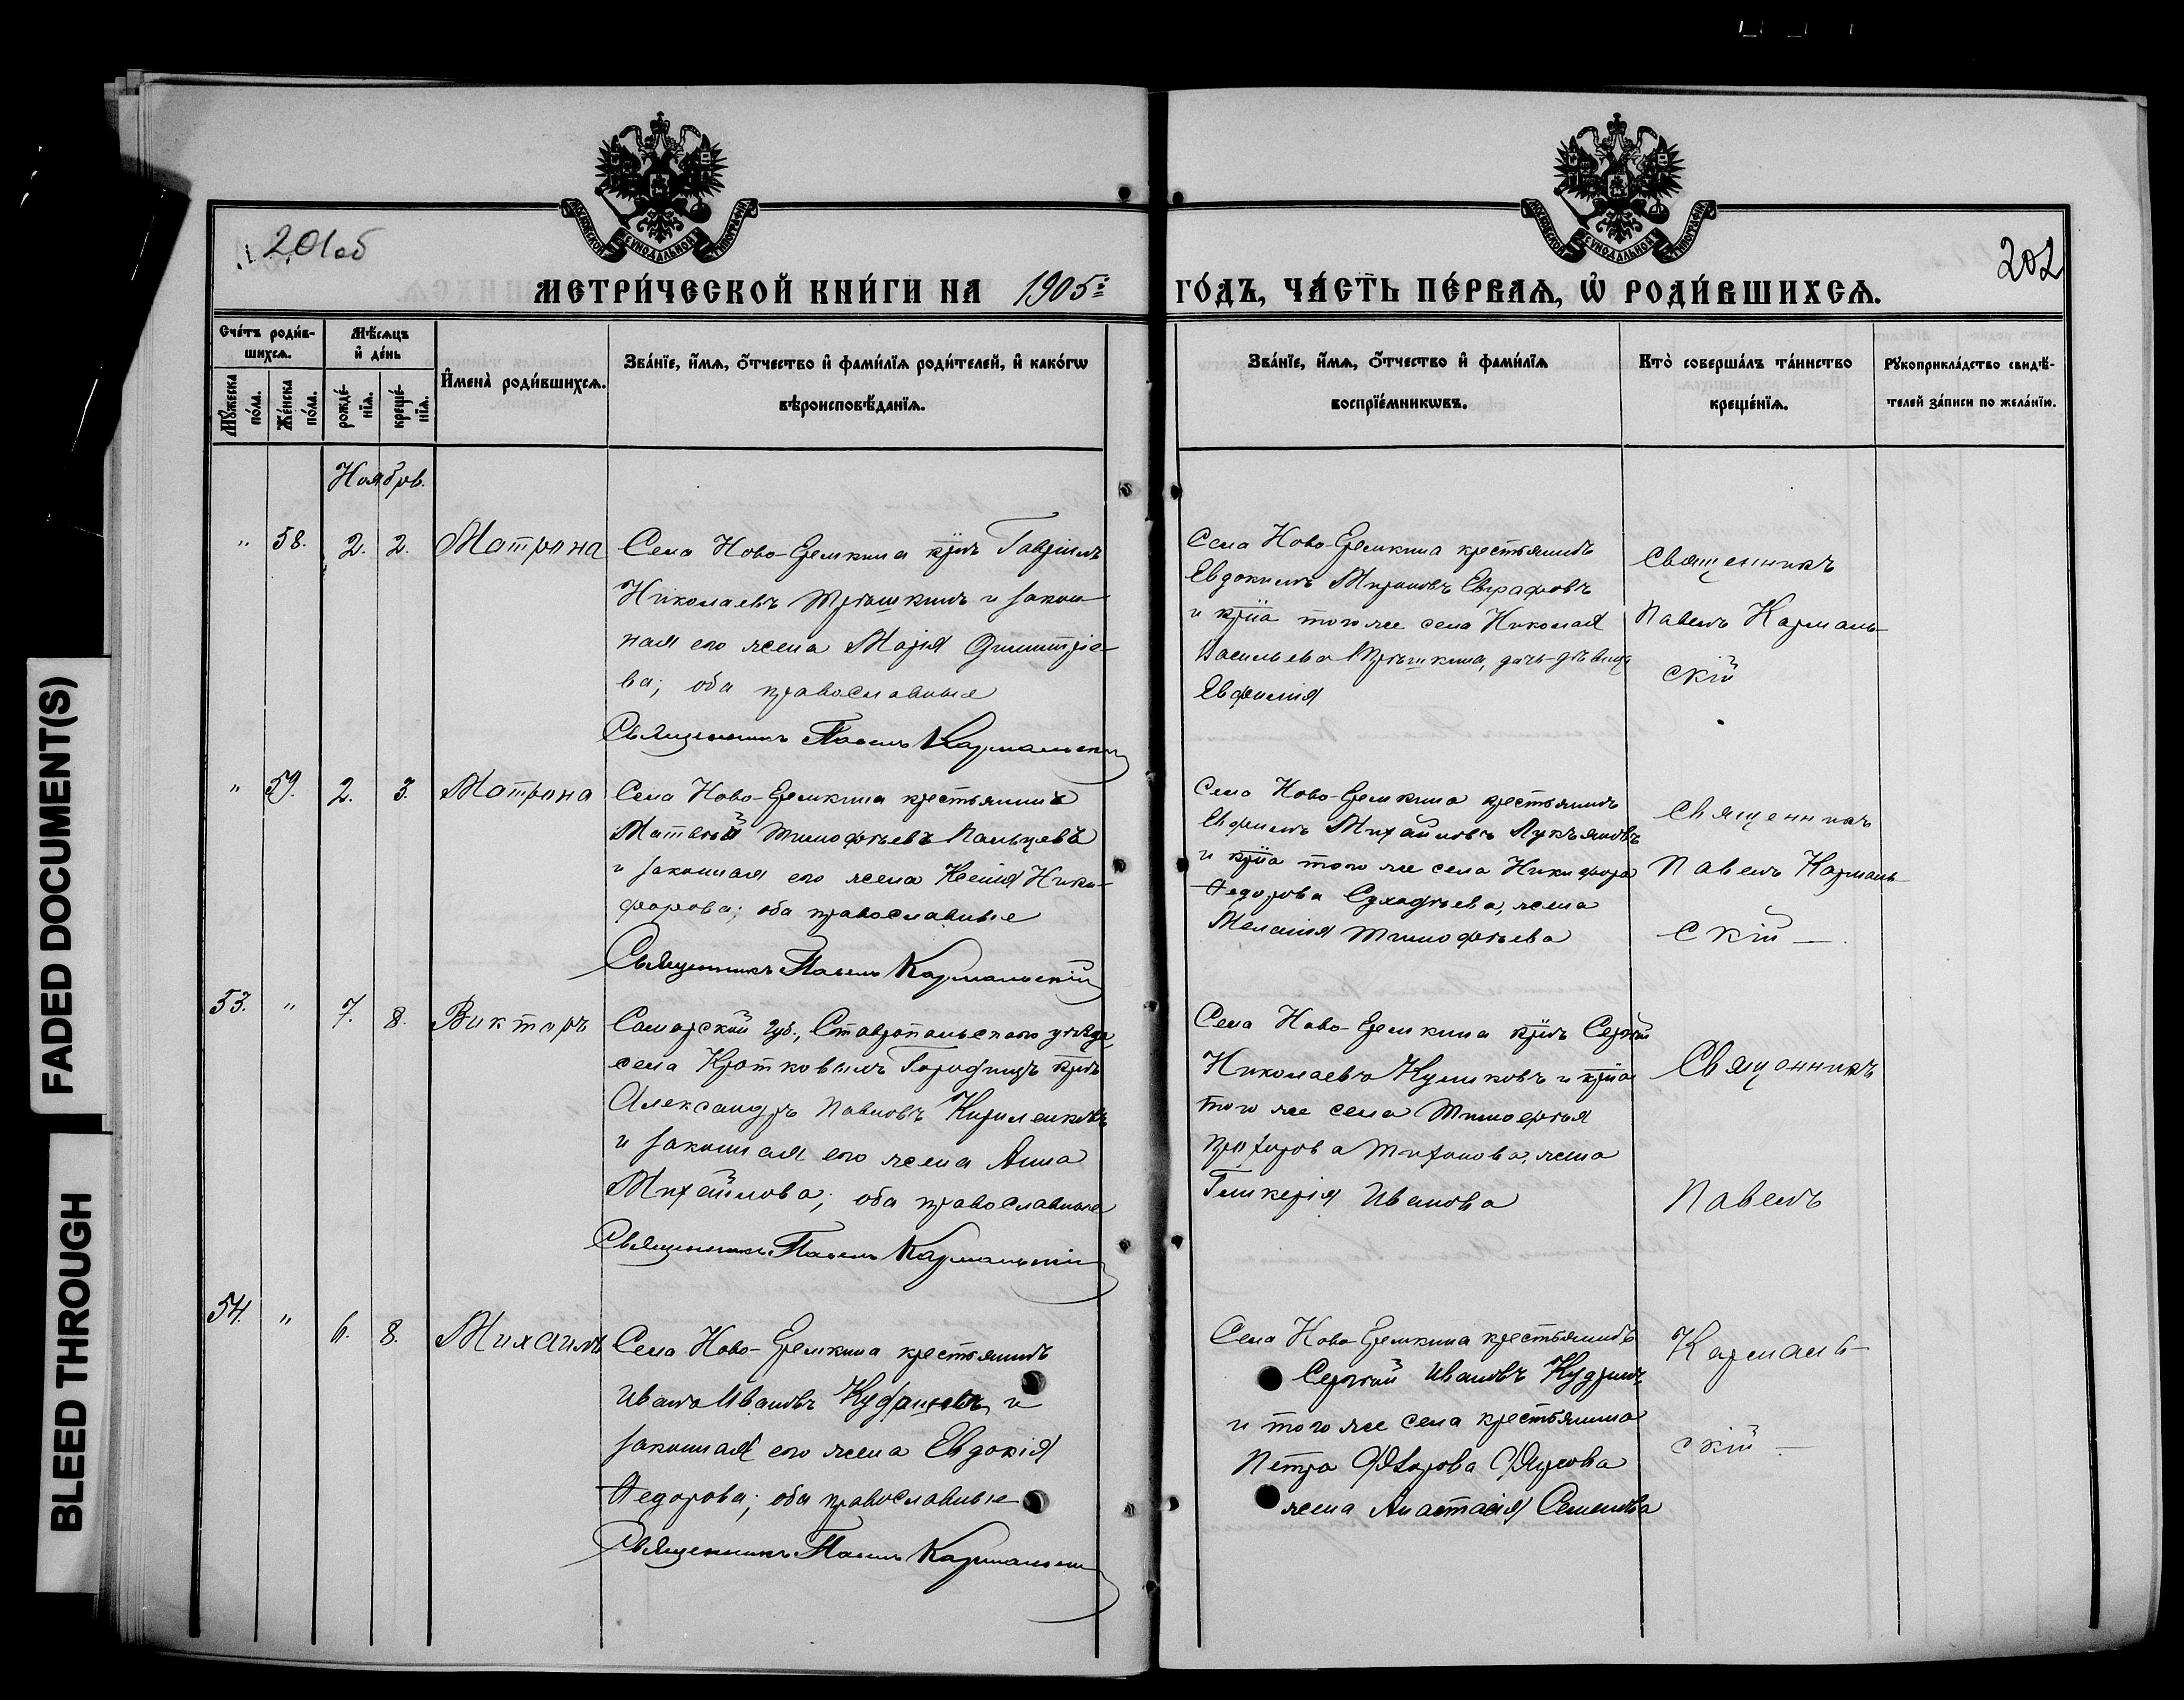 FADED DOCUMENT(S)
BLEED THROUGH
201об
202
МОСКОВСКОЙ СѴНОДАЛЬНОЙ ТИПОГРАФІИ
МОСКОВСКОЙ СѴНОДАЛЬНОЙ ТИПОГРАФІИ
МЕТРИ́ЧЕСКОЙ КНИ́ГИ НА 1905 г.
ГО́ДЪ, ЧА́СТЬ ПЕ́РВАѦ, Ѡ҆ РОДИ́ВШИХСѦ.
Сче́тъ роди́в-
шихсѧ.
Мꙋ́жеска по́ла.
Же́нска по́ла.
Мѣ́сѧцъ
и҆ де́нь
рожде́-
нїѧ.
креще́-
нїѧ.
И҆мена̀ роди́вшихсѧ.
Зва́нїе, и҆́мѧ, ѻ҆́тчество и҆ фами́лїѧ роди́телей, и҆ како́гѡ
вѣроисповѣ́данїѧ.
Зва́нїе, и҆́мѧ, ѻ҆́тчество и҆ фами́лїѧ
воспрїе́мникѡвъ.
Кто̀ соверша́лъ та́инство
креще́нїѧ.
Рꙋкоприкла́дство свидѣ́-
телей за́писи по жела́нїю.
Ноябрь.
" 58. 2. 2. Матрона
Села Ново-Еремкина крнъ Гавріилъ
Николаевъ Трѣшкинъ и закон-
ная его жена Марія Димитріе-
ва; оба православные
Священникъ Павелъ Кармальскій
Села Ново-Еремкина крестьянинъ
Евдокимъ Мироновъ Евграфовъ
и крна того же села Николая
Васильева Трѣшкина, дочь-дѣвица
Евфимія
Священникъ
Павелъ Кармаль-
скій
" 59. 2. 3. Матрона
Села Ново-Еремкина крестьянинъ
Матвѣй Тимофѣевъ Пальцевъ
и законная его жена Ксенія Ники-
форова; оба православные
Священникъ Павелъ Кармальскій
Села Ново-Еремкина крестьянинъ
Евфимъ Михайловъ Лукъяновъ
и крна того же села Никифора
Ѳедорова Суходѣева, жена
Меланія Тимофѣева
Священникъ
Павелъ Кармаль-
скій —
53. " 7. 8. Викторъ
Самарской губ., Ставропольскаго уѣзда
села Кротковыхъ Городищъ крнъ
Александръ Павловъ Кириленковъ
и законная его жена Анна
Михайлова; оба православные
Священникъ Павелъ Кармальскій
Села Ново-Еремкина крнъ Сергѣй
Николаевъ Куликовъ и крна
того же села Тимофѣя
Прохорова Тихонова, жена
Гликерія Иванова
Священникъ
Павелъ
54. " 6. 8. Михаилъ
Села Ново-Еремкина крестьянинъ
Иванъ Ивановъ и
законная его жена Евдокія
Ѳедорова; оба православные
Священникъ Павелъ Кармальскій
Села Ново-Еремкина крестьянинъ
Сергѣй Ивановъ Кудринъ
и того же села крестьянина
Петра Ѳедорова
жена Анастасія Семенова
Кармаль-
скій —